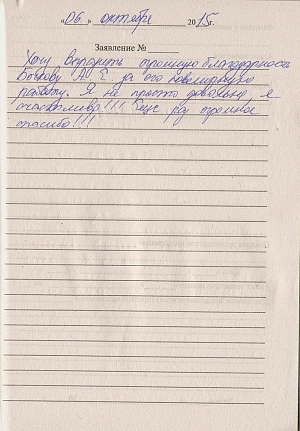 «06» октября 2015г.
Заявление №
Хочу выразить огромную благодарность
Бокову А. Е. за его ювелирную
работу. Я не просто довольна я
счастлива!!! Еще раз огромное
спасибо!!!